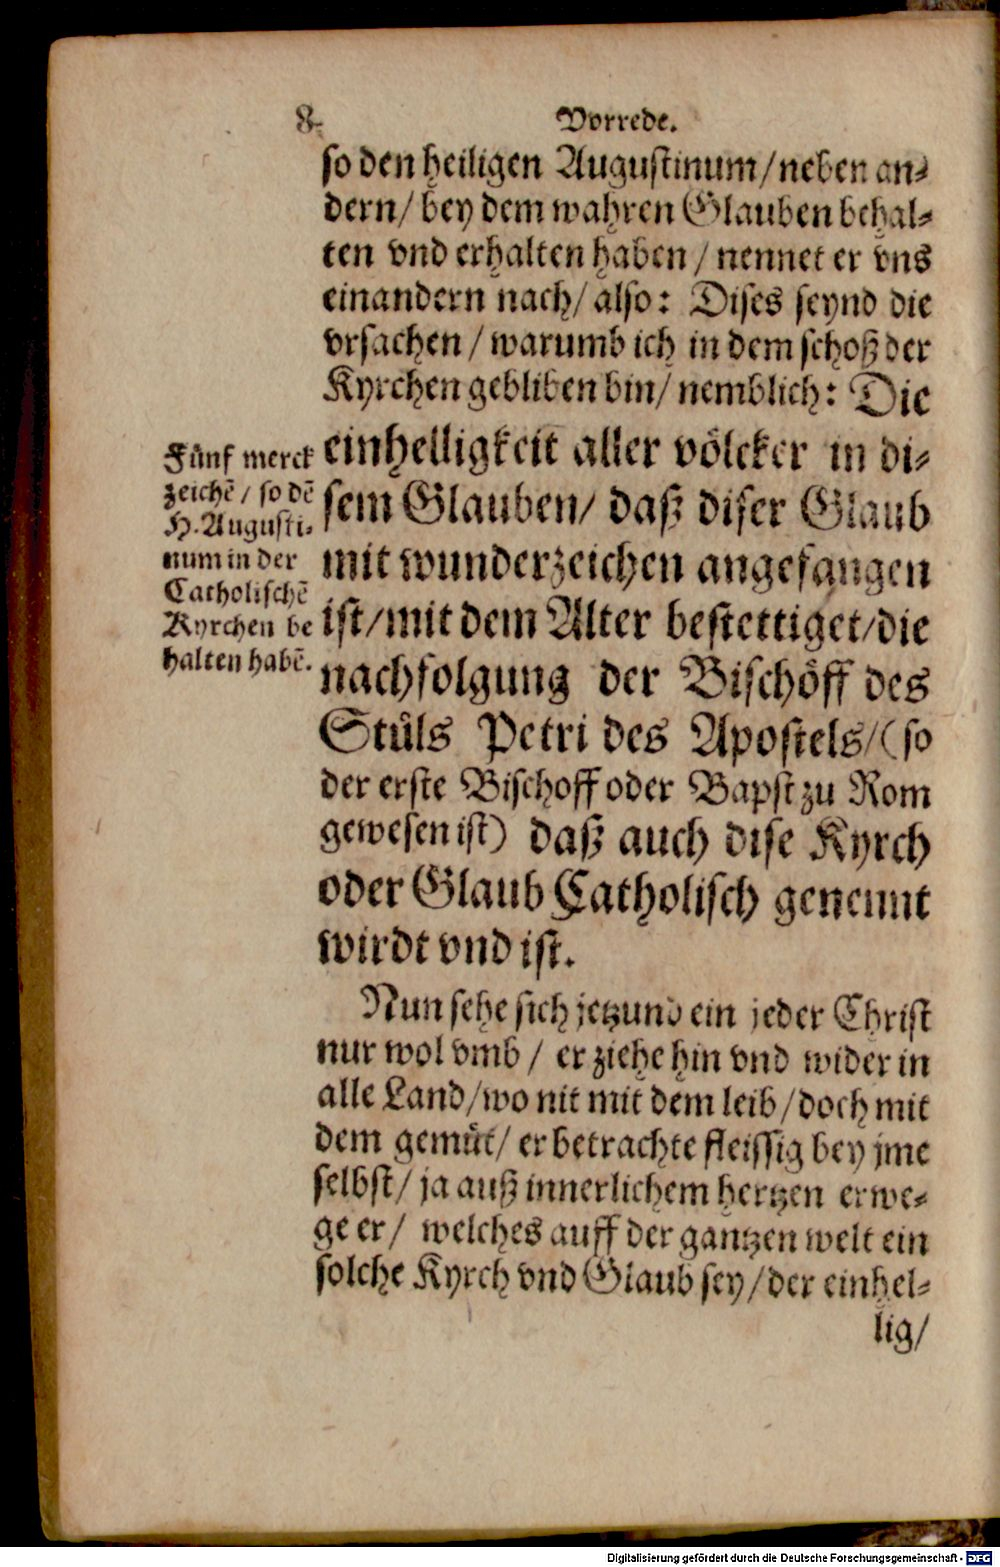 8 Vorrede.
so den heiligen Augustinum/ neben an-
dern/ bey dem wahren Glauben behal-
ten vnd erhalten haben / nennet er vns
einandern nach/ also: Dises seynd die
vrsachen / warumb ich in dem schoß der
Kyrchen gebliben bin/ nemblich: Die
einhelligkeit aller völcker in di-
sem Glauben/ daß diser Glaub
mit wunderzeichen angefangen
ist/ mit dem Alter bestettiget/ die
nachfolgung der Bischöff des
Stůls Petri des Apostels/ (so
der erste Bischoff oder Bapst zu Rom
gewesen ist) daß auch dise Kyrch
oder Glaub Catholisch genennt
wirdt vnd ist.
Fünf merck
zeichē / so dē
H. Augusti-
num in der
Catholischē
Kyrchen be
halten habē.
Nun sehe sich jetzund ein jeder Christ
nur wol vmb / er ziehe hin vnd wider in
alle Land/ wo nit mit dem leib / doch mit
dem gemůt/ er betrachte fleissig bey jme
selbst/ ja auß innerlichem hertzen erwe-
ge er/ welches auff der gantzen welt ein
solche Kyrch vnd Glaub sey/ der einhel-
lig/
Digitalisierung gefördert durch die Deutsche Forschungsgemeinschaft - DFG